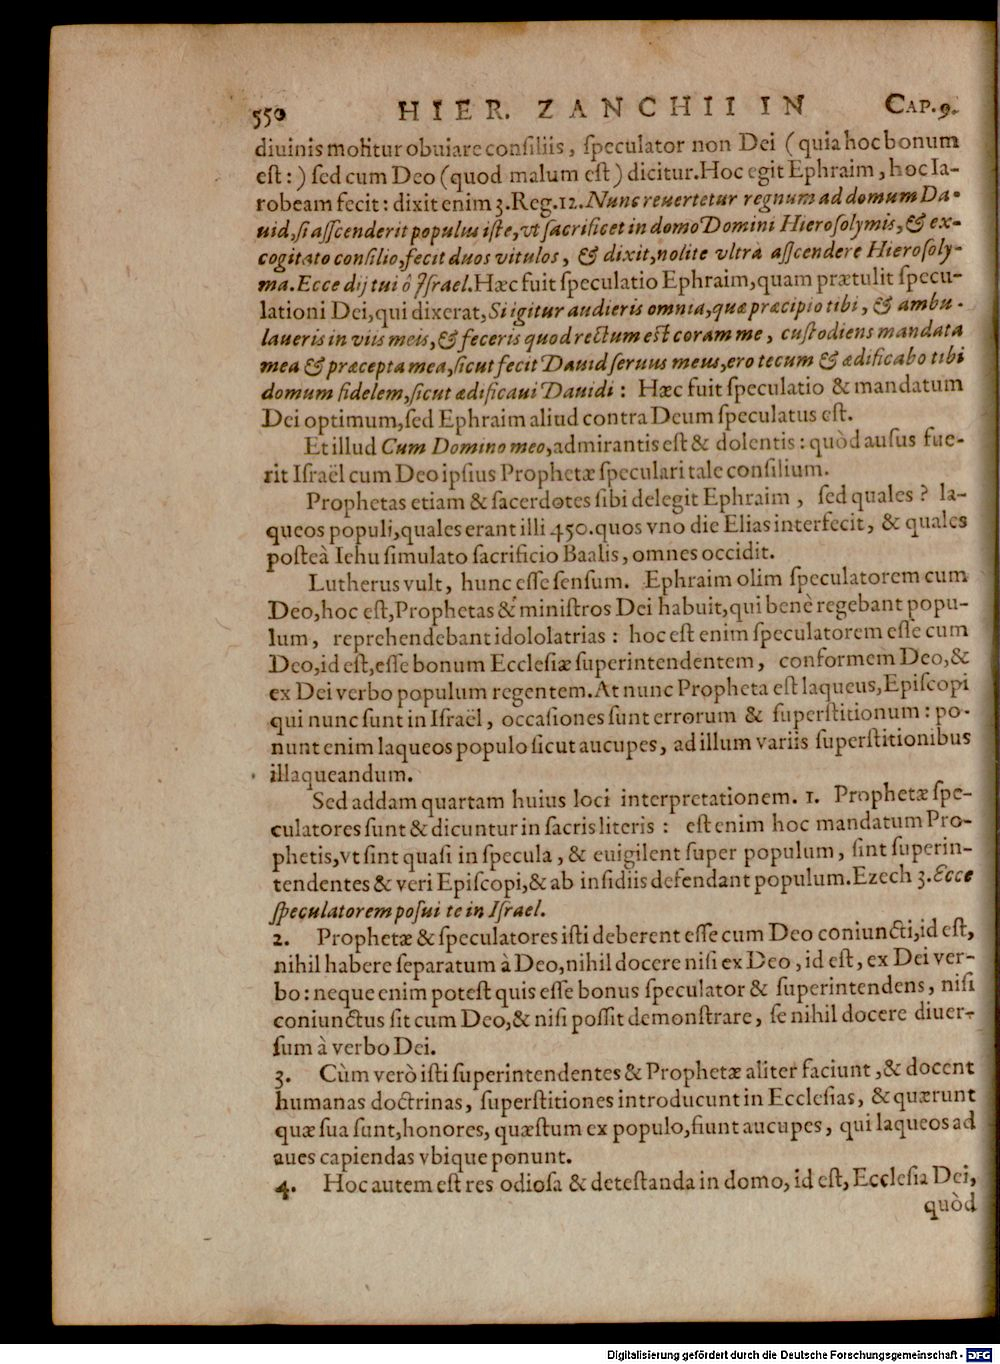 550 HIER. ZANCHII IN CAP. 9.
diuinis molitur obuiare consiliis, speculator non Dei (quia hoc bonum
est:) sed cum Deo (quod malum est) dicitur. Hoc egit Ephraim, hoc Ia-
robeam fecit: dixit enim 3. Reg. 12. Nunc reuertetur regnum ad domum Da-
uid, si asscenderit populus iste, vt sacrificet in domo Domini Hierosolymis, & ex-
cogitato consilio, fecit duos vitulos, & dixit, nolite vltrà asscendere Hierosoly-
ma. Ecce dij tui ô Israel. Hæc fuit speculatio Ephraim, quam prætulit specu-
lationi Dei, qui dixerat, Si igitur audieris omnia, quæ præcipio tibi, & ambu-
laueris in viis meis, & feceris quod rectum est coram me, custodiens mandata
mea & præcepta mea, sicut fecit Dauid seruus meus, ero tecum & ædificabo tibi
domum fidelem, sicut ædificaui Dauidi: Hæc fuit speculatio & mandatum
Dei optimum, sed Ephraim aliud contra Deum speculatus est.
Et illud Cum Domino meo, admirantis est & dolentis: quòd ausus fue-
rit Israël cum Deo ipsius Prophetæ speculari tale consilium.
Prophetas etiam & sacerdotes sibi delegit Ephraim, sed quales? la-
queos populi, quales erant illi 450. quos vno die Elias interfecit, & quales
posteà Iehu simulato sacrificio Baalis, omnes occidit.
Lutherus vult, hunc esse sensum. Ephraim olim speculatorem cum
Deo, hoc est, Prophetas & ministros Dei habuit, qui benè regebant popu-
lum, reprehendebant idololatrias: hoc est enim speculatorem esse cum
Deo, id est, esse bonum Ecclesiæ superintendentem, conformem Deo, &
ex Dei verbo populum regentem. At nunc Propheta est laqueus, Episcopi
qui nunc sunt in Israël, occasiones sunt errorum & superstitionum: po-
nunt enim laqueos populo sicut aucupes, ad illum variis superstitionibus
illaqueandum.
Sed addam quartam huius loci interpretationem. 1. Prophetæ spe-
culatores sunt & dicuntur in sacris literis: est enim hoc mandatum Pro-
phetis, vt sint quasi in specula, & euigilent super populum, sint superin-
tendentes & veri Episcopi, & ab insidiis defendant populum. Ezech 3. Ecce
speculatorem posui te in Israel.
2. Prophetæ & speculatores isti deberent esse cum Deo coniuncti, id est,
nihil habere separatum à Deo, nihil docere nisi ex Deo, id est, ex Dei ver-
bo: neque enim potest quis esse bonus speculator & superintendens, nisi
coniunctus sit cum Deo, & nisi possit demonstrare, se nihil docere diuer-
sum à verbo Dei.
3. Cùm verò isti superintendentes & Prophetæ aliter faciunt, & docent
humanas doctrinas, superstitiones introducunt in Ecclesias, & quærunt
quæ sua sunt, honores, quæstum ex populo, fiunt aucupes, qui laqueos ad
aues capiendas vbique ponunt.
4. Hoc autem est res odiosa & detestanda in domo, id est, Ecclesia Dei,
quòd
Digitalisierung gefördert durch die Deutsche Forschungsgemeinschaft - DFG